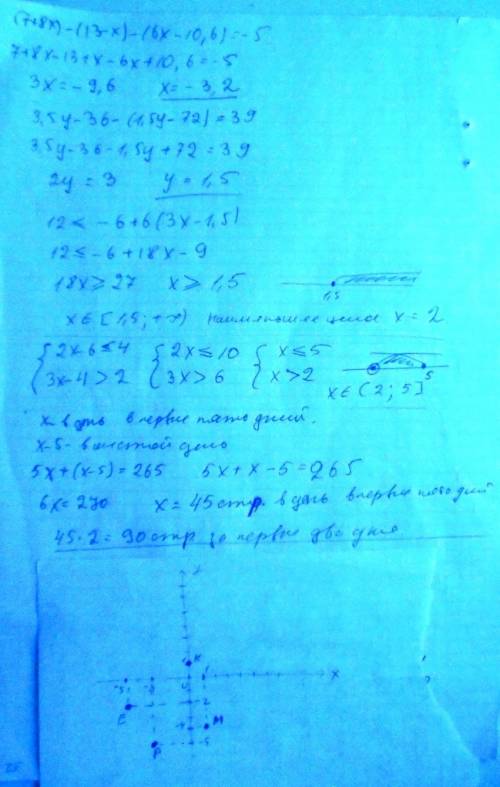 (7+8x)-(13-x)-(6x-10,6)=-5
7+8x-13+x-6x+10,6=-5
3x=-9,6   x=-3,2
3,5y-36-(1,5y-72)=39
3,5y-36-1,5y+72=39
2y=3   y=1,5
12≤-6+6(3x-1,5)
12≤-6+18x-9
18x≥27   x≥1,5   1,5
x∈[1,5;+∞)   наименьшее целое x=2
{2x-6≤4   {2x≤10   {x≤5
{3x-4>2   {3x>6   {x>2   2   5
x∈(2;5]
x-в день в первые пять дней.
x-5-в шестой день
5x+(x-5)=265   5x+x-5=265
6x=270   x=45 стр. в день в первые пять дней
45·2=90 стр за первые два дня
1 K
-5 -3 0 1 x
E -2
-4 M
P -5